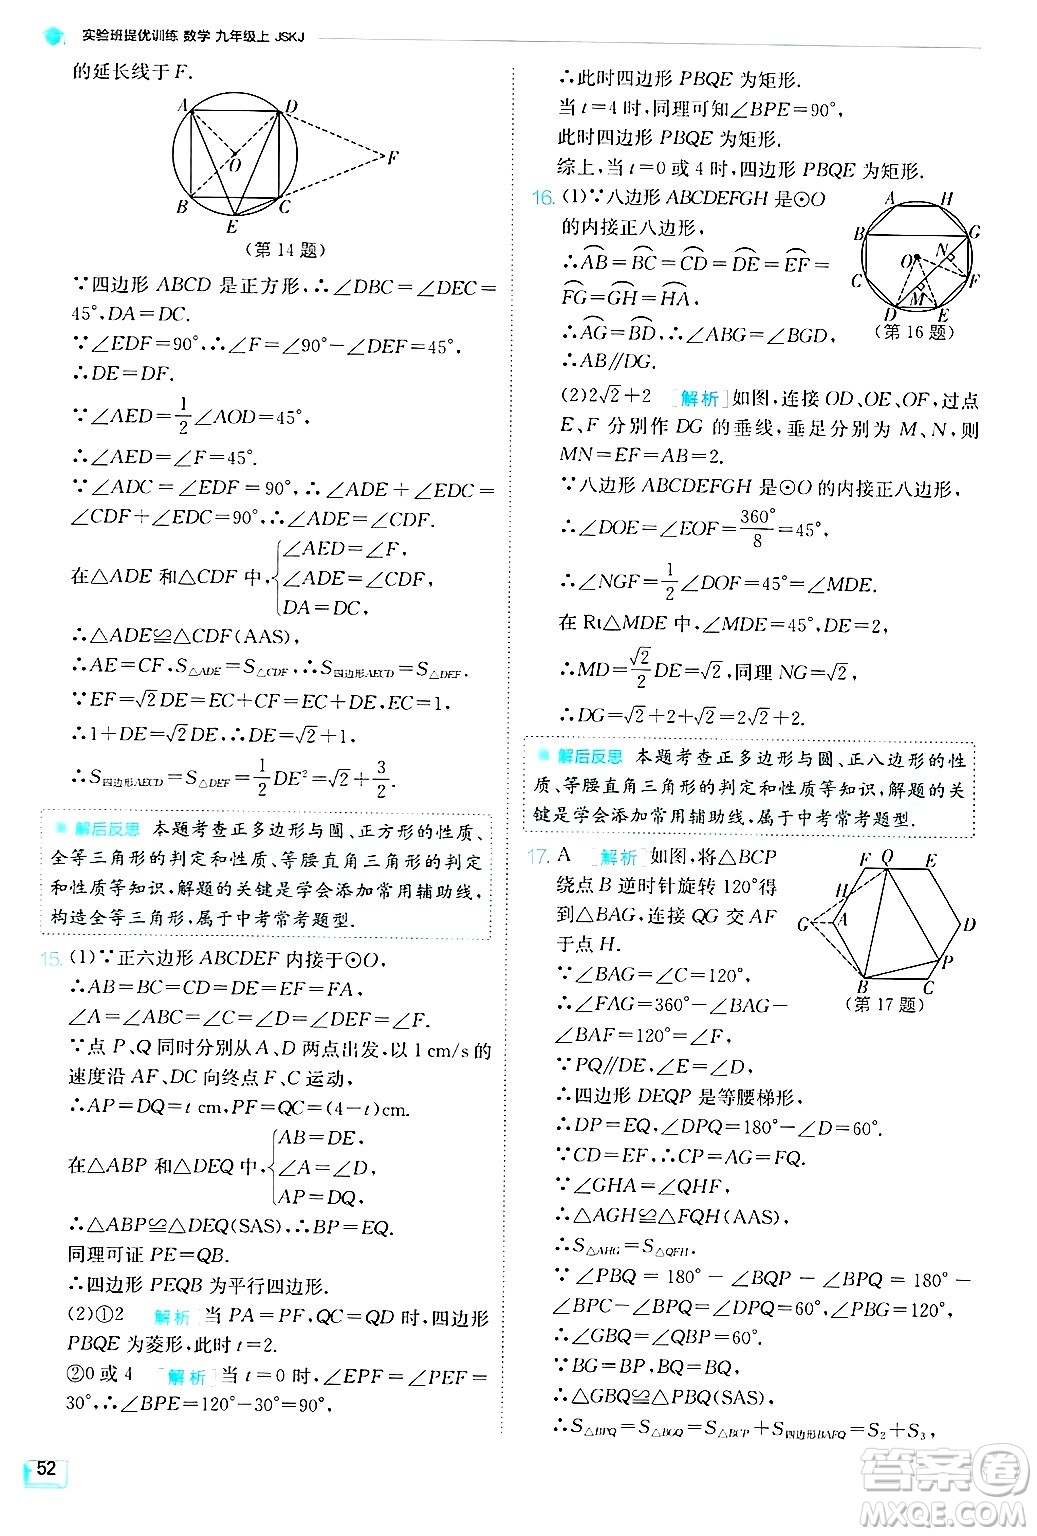 实验班提优训练 数学 九年级上 JSKJ
的延长线于 F.
A D O F B C E
(第 14 题)
∵四边形 ABCD 是正方形,∴∠DBC=∠DEC=
45°,DA=DC.
∵∠EDF=90°,∴∠F=∠90°-∠EDF=45°.
∴DE=DF.
∵∠AED=1/2∠AOD=45°,
∴∠AED=∠F=45°.
∵∠ADC=∠EDF=90°,∴∠ADE+∠EDC=
∠CDF+∠EDC=90°,∴∠ADE=∠CDF.
在△ADE 和△CDF 中,{∠AED=∠F,
∠ADE=∠CDF,
DA=DC,
∴△ADE≌△CDF(AAS),
∴AE=CF,S△ADE=S△CDF,∴S四边形AECD=S△DEF.
∵EF=√2DE=EC+CF=EC+AE,
∴1+DE=√2DE,∴DE=√2+1,
∴S四边形AECD=S△DEF=1/2DE²=√2+3/2.
解后反思 本题考查正多边形与圆、正方形的性质、
全等三角形的判定和性质、等腰直角三角形的判定
和性质等知识,解题的关键是学会添加常用辅助线,
构造全等三角形,属于中考常考题型.
15. (1)∵正六边形 ABCDEF 内接于⊙O,
∴AB=BC=CD=DE=EF=FA,
∠A=∠ABC=∠C=∠D=∠DEF=∠F.
∵点 P、Q 同时分别从A、D 两点出发,以 1 cm/s 的
速度沿 AF、DC 向终点 F、C 运动,
∴AP=DQ=t cm,PF=QC=(4-t)cm.
在△ABP 和△DEQ 中,{AB=DE,
∠A=∠D,
AP=DQ,
∴△ABP≌△DEQ(SAS),∴BP=EQ.
同理可证 PE=QB.
∴四边形 PEQB 为平行四边形.
(2)①2 [解析] 当 PA=PF,QC=QD 时,四边形
PBQE 为菱形,此时 t=2.
②0 或 4 [解析] 当 t=0 时,∠EPF=∠PEF=
30°,∴∠BPE=120°-30°=90°,
52
∴此时四边形 PBQE 为矩形.
当 t=4 时,同理可知∠BPE=90°,
此时四边形 PBQE 为矩形.
综上,当 t=0 或 4 时,四边形 PBQE 为矩形.
16. (1)∵八边形 ABCDEFGH 是⊙O
的内接正八边形,
∴AB=BC=CD=DE=EF=
FG=GH=HA,
∴AG=BD,∴∠ABG=∠BGD,
∴AB∥DG.
A H B G N O F C M D E
(第 16 题)
(2)2√2+2 [解析]如图,连接 OD、OE、OF,过点
E、F 分别作 DG 的垂线,垂足分别为 M、N,则
MN=EF=AB=2.
∵八边形 ABCDEFGH 是⊙O 的内接正八边形,
∴∠DOE=∠EOF=360°/8=45°,
∴∠NGF=1/2∠DOF=45°=∠MDE.
在 Rt△MDE 中,∠MDE=45°,DE=2,
∴MD=√2/2DE=√2,同理 NG=√2,
∴DG=√2+2+√2=2√2+2.
解后反思 本题考查正多边形与圆、正八边形的性
质、等腰直角三角形的判定和性质等知识,解题的关
键是学会添加常用辅助线,属于中考常考题型.
17. A [解析]如图,将△BCP
绕点 B 逆时针旋转 120°得
到△BAG,连接 QG 交 AF
于点 H.
∵∠BAG=∠C=120°,
∴∠GAF=360°-∠BAG-
∠BAF=120°=∠F,
∵PQ∥DE,∠E=∠D,
F Q E H G A D P B C
(第 17 题)
∴四边形 DEQP 是等腰梯形,
∴DP=EQ,∠DPQ=180°-∠D=60°.
∵CD=EF,∴CP=AG=FQ.
∵∠GHA=∠QHF,
∴△AGH≌△FQH(AAS),
∴S△AHG=S△QFH.
∵∠PBQ=180°-∠BPQ-∠BQP=180°-
∠BPC-∠BPQ=∠DPQ=60°,∠PBG=120°,
∴∠GBQ=∠PBQ=60°.
∵BG=BP,BQ=BQ,
∴△GBQ≌△PBQ(SAS),
∴S△BPQ=S△BGQ=S△BCP+S四边形BAFQ=S2+S3,
答案圈
MXQE.COM